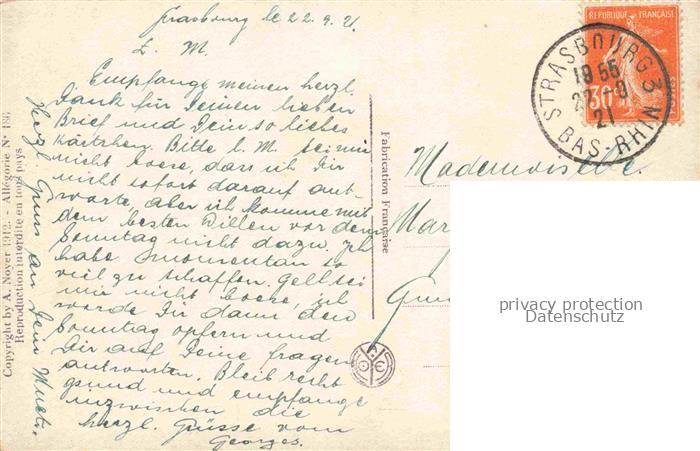 Strasbourg le 22. 9. 21
L. M.
Empfange meinen herzl.
Dank für Deinen lieben
Brief und Dein so liebes
Kärtchen. Bitte l. M. sei mir
nicht boese, dass ich Dir
nicht sofort darauf ant-
worte, aber ich komme mit
dem besten Willen vor dem
Sonntag nicht dazu. Ich
habe momentan so
viel zu schaffen. Gell sei
mir nicht boese, ich
werde Dir dann den
Sonntag opfern und
Dir auf Deine fragen
antworten. Bleib recht
gsund und empfange
inzwischen die
herzl. Grüsse vom
Georges.
herzl. Gruss an Dein
Copyright by A. Noyer 1912. - Allégorie N° 186
Reproduction interdite en tous pays
Fabrication Française
RÉPUBLIQUE FRANÇAISE
30
POSTES
STRASBOURG 3
18 55
21
BAS-RHIN
Mademoiselle
Mar
privacy protection
Datenschutz